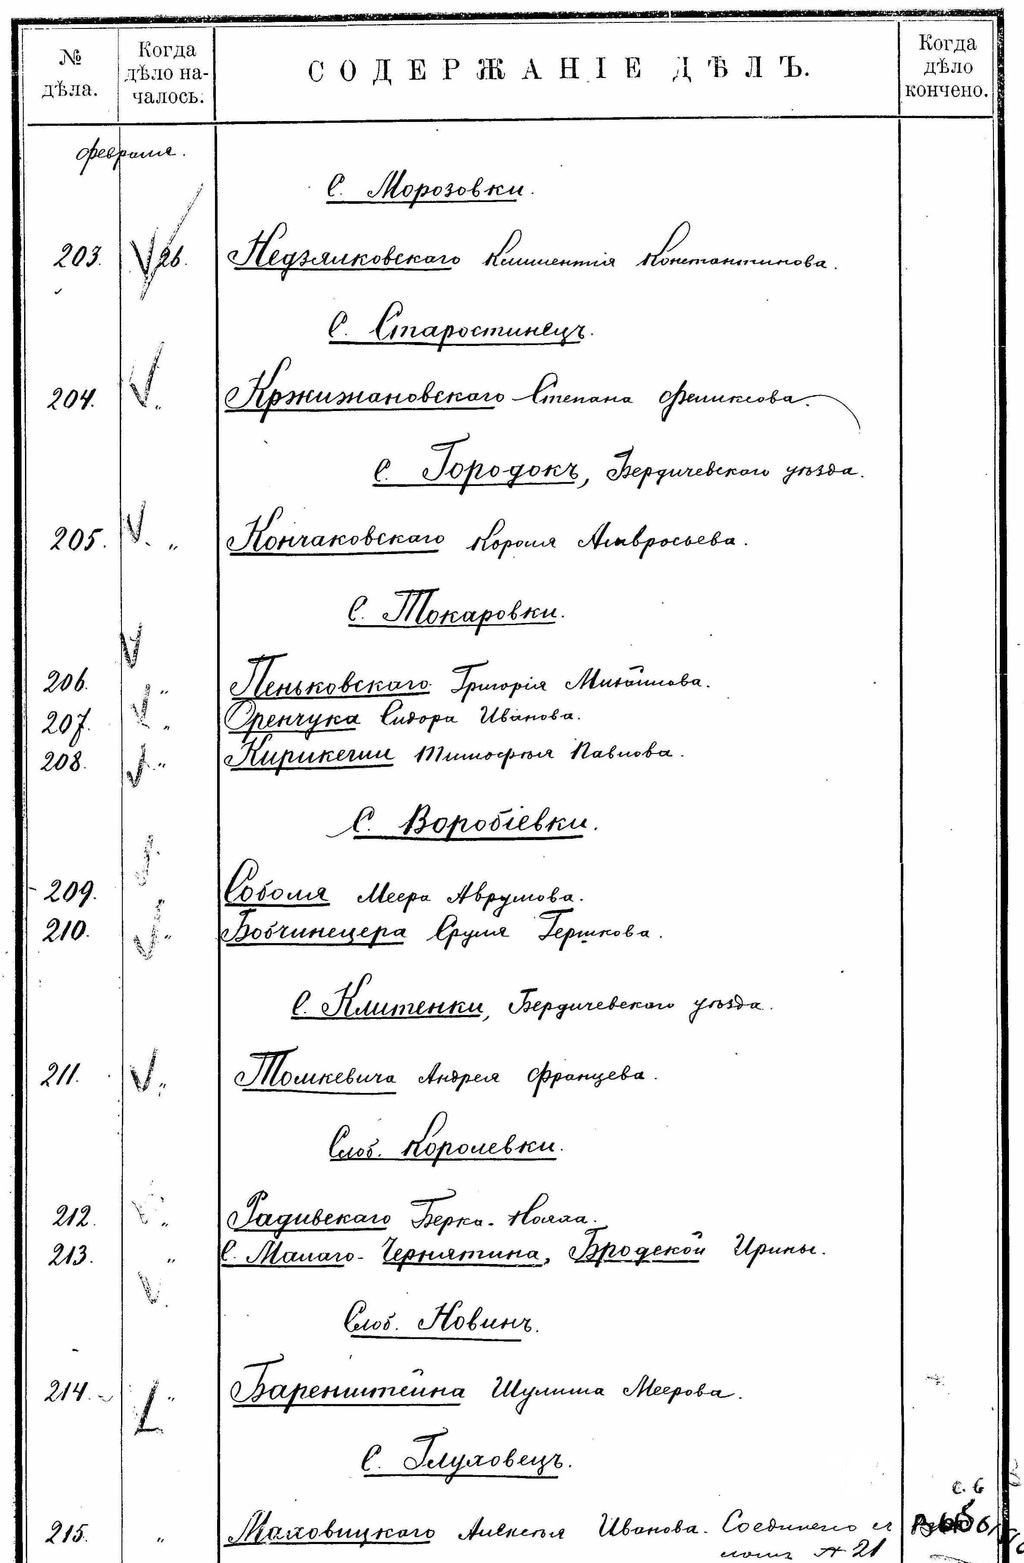 № дѣла. Когда дѣло началось. СОДЕРЖАНІЕ ДѢЛЪ. Когда дѣло кончено.
февраля.
С. Морозовки.
203. 26. Недзялковскаго Климентія Константинова.
С. Старостинецъ.
204. „ Кржижановскаго Степана Феликсова.
С. Городокъ, Бердичевскаго уѣзда.
205. „ Кончаковскаго Кароля Амвросьева.
С. Токаровки.
206. „ Пеньковскаго Григорія Михайлова.
207. „ Оренчука Сидора Иванова.
208. „ Тимофѣя Павлова.
С. Воробіевки.
209. „ Соболя Меера Аврумова.
210. „ Бобчинецера Сруля Гершкова.
С. Клитенки, Бердичевскаго уѣзда.
211. „ Томкевича Андрея Францева.
Слоб. Королевки.
212. „ Радивскаго Берка-
213. „ С. Малаго-Чернятина, Бродской Ирины.
Слоб. Новинъ.
214. „ Баренштейна Шулима Меерова.
С. Глуховецъ.
215. „ Маховицкаго Алексѣя Иванова. Соединено
№ 21